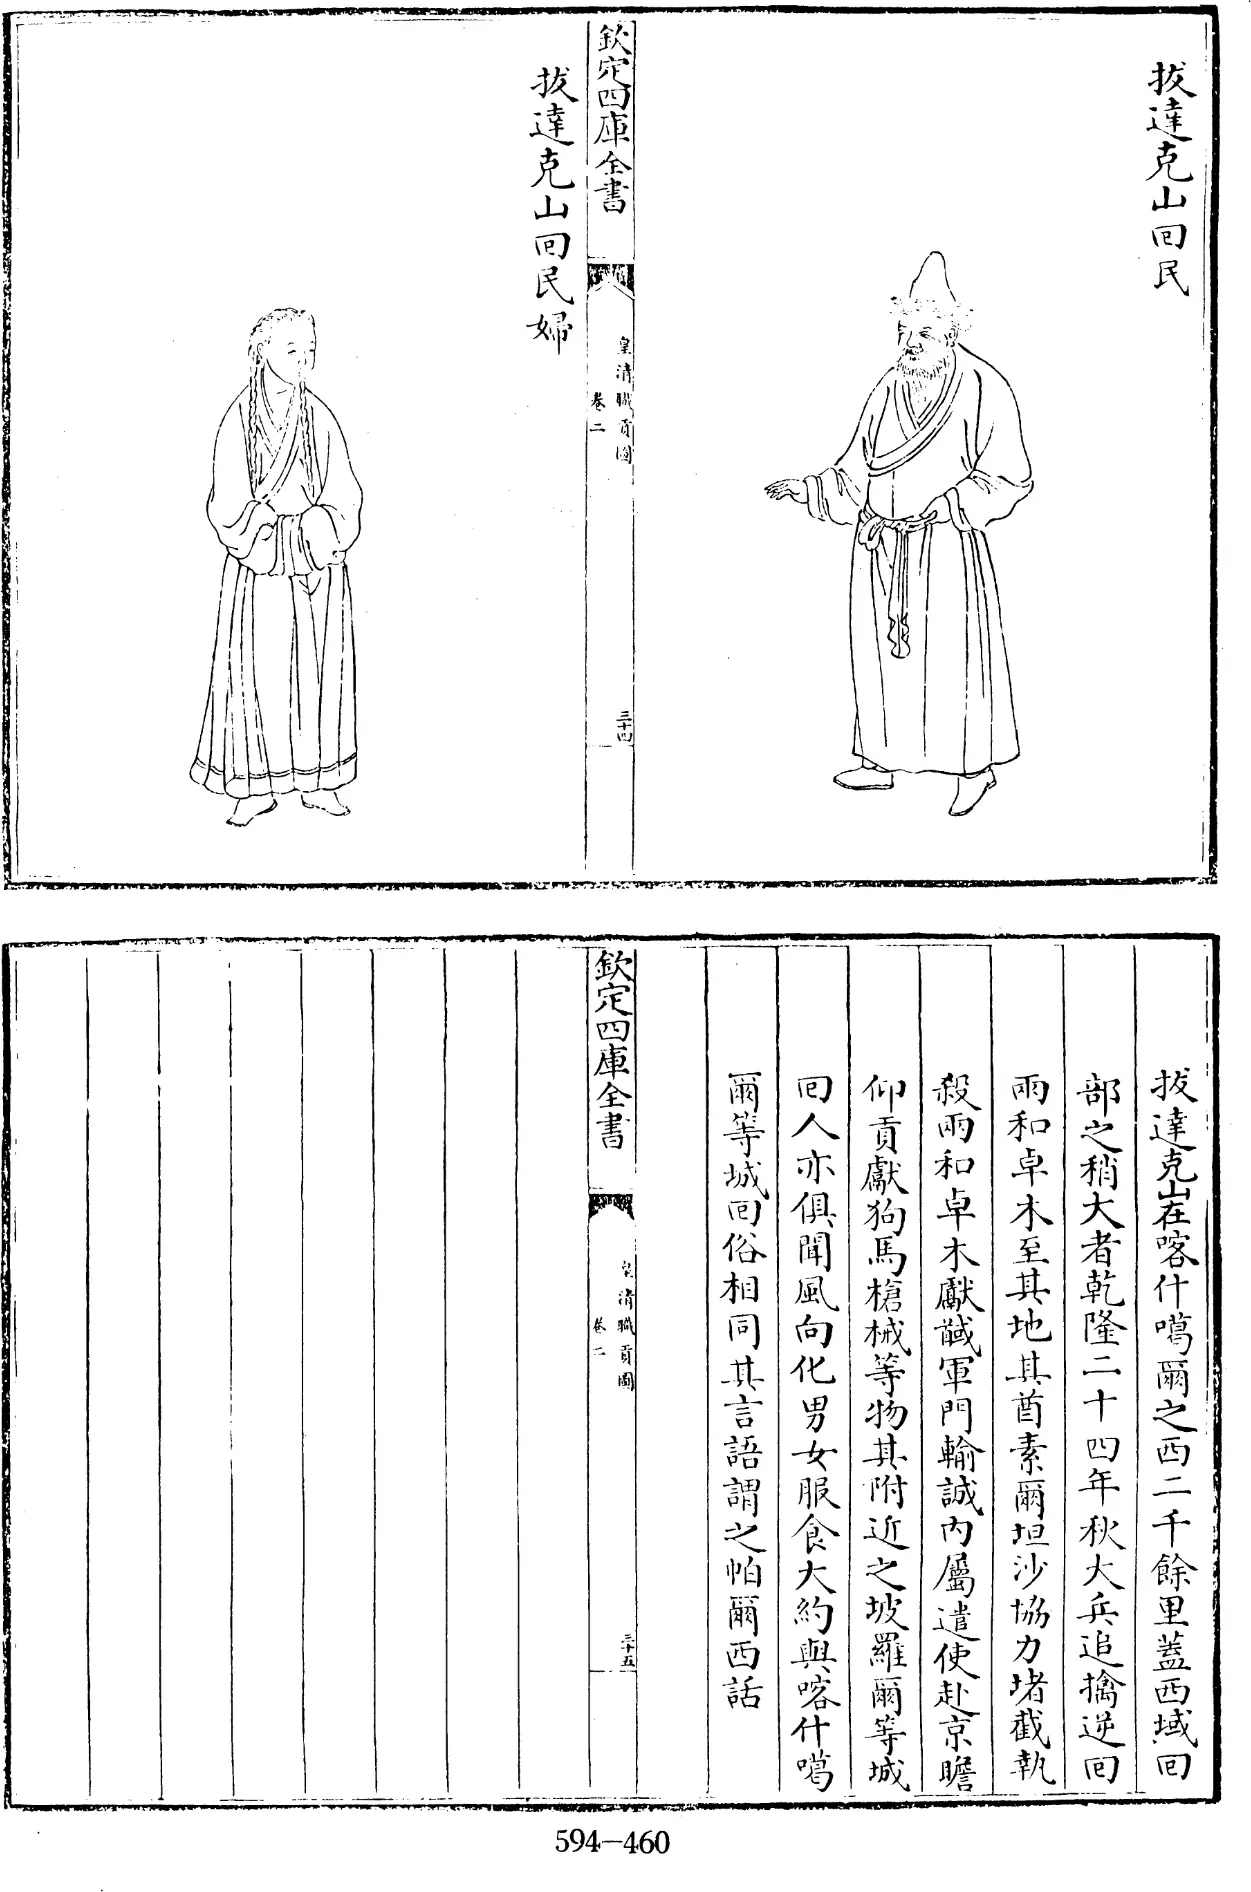 拔達克山回民
欽定四庫全書
皇清職貢圖
卷二
三十四
拔達克山回民婦
拔達克山在喀什噶爾之西二千餘里蓋西域回
部之稍大者乾隆二十四年秋大兵追擒逆回
兩和卓木至其地其酋素爾坦沙協力堵截執
殺兩和卓木獻馘軍門輸誠内屬遣使赴京瞻
仰貢獻狗馬槍械等物其附近之坡羅爾等城
回人亦俱聞風向化男女服食大約與喀什噶
爾等城回俗相同其言語謂之帕爾西話
欽定四庫全書
皇清職貢圖
卷二
三十五
594-460